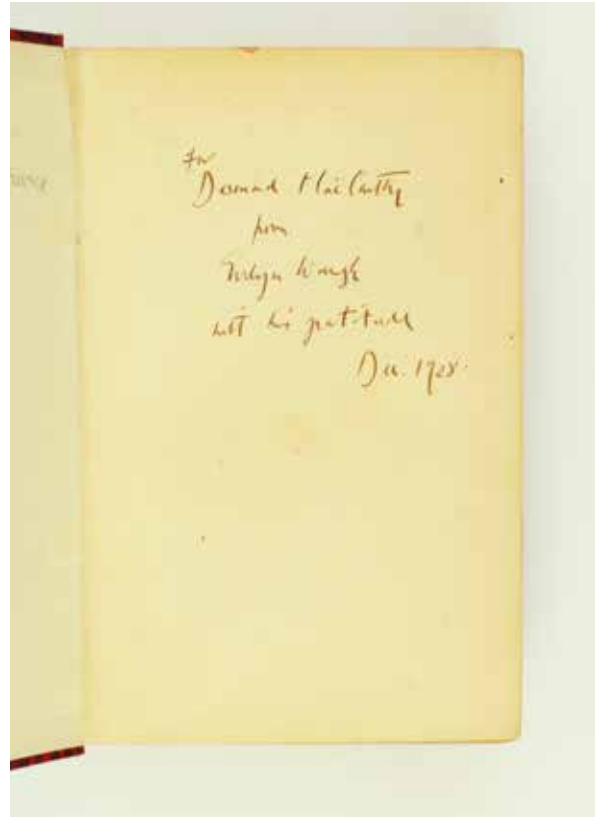 For
Desmond MacCarthy
from
Evelyn Waugh
with his gratitude
Dec. 1928.